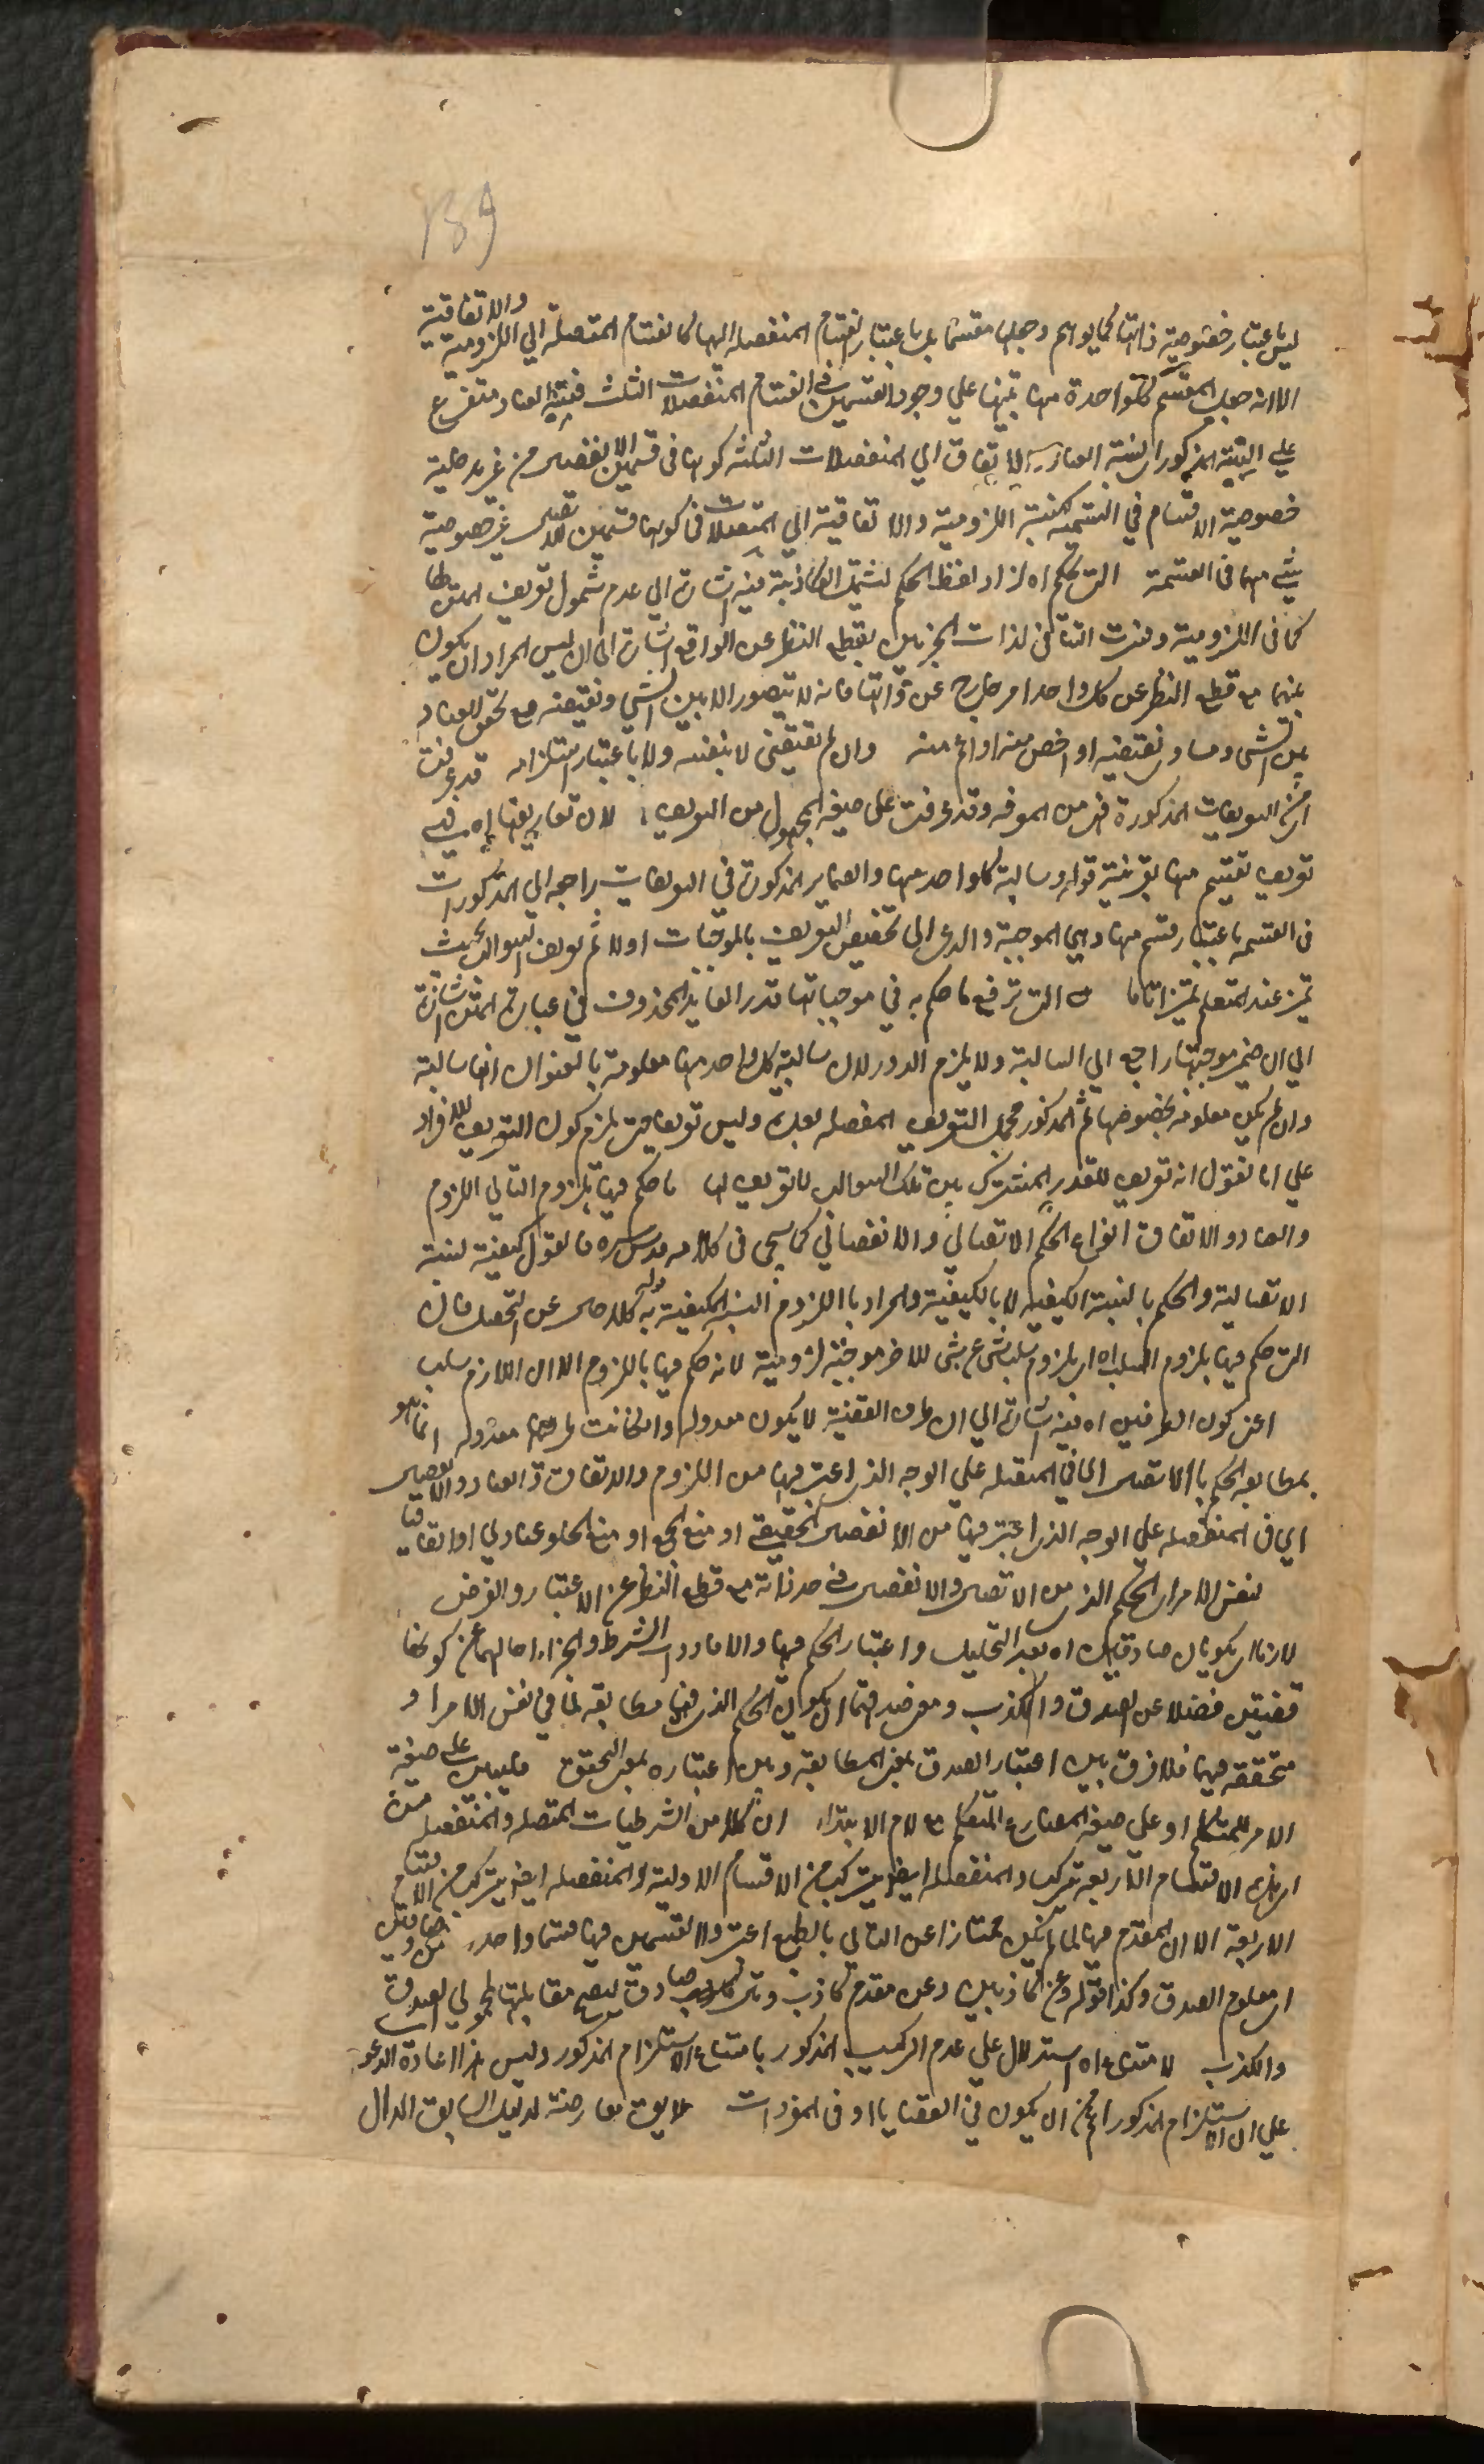 139
ليس باعتبار خصوصية ذاتها كما يوهم وجعلها مقسما بل باعتبار انقسام المنفصلة اليها كانقسام المتصلة الى اللزومية والاتفاقية
الا انه جعل المقسم كل واحدة منها تنبيها على وجود القسمين في انقسام المنفصلات الثلث فنسبة العناد متفرع
على المذكور اي نسبة العنادية والاتفاق الى المنفصلات الثلثة كونها في قسمين الانفصال من غير مدخلية
خصوصية الاقسام في القسمية كنسبة اللزومية والاتفاقية الى المتصلات في كونها قسمين من غير خصوصية
شئ منها في القسمة التي حكم اه زاد لفظ الحكم ليشمل الكاذبة فيه اشارة الى عدم شمول تعريف المتن لها
كما في اللزومية وفسرت التنافي لذات الجزئين بقطع النظر عن الواقع اشارة الى ان ليس المراد ان يكون
بينهما مع قطع النظر عن كل واحد امر خارج عن ذاتها فانه لا يتصور الا بين الشئ ونقيضه مع تحقق العناد
بين الشئ ومساوي نقيضه او اخص منه او اعم منه وان لم يقتض لا بنفسه ولا باعتبار استلزامه قد عرفت
التعريفات المذكورة من المعرفة وقد عرفت على صيغة المجهول من التعريف لان تعاريفها
تعريف تقسيم منها بقرينة قوله وسالبة كل واحد منها والضماير المذكورة في التعريفات راجعة الى المذكورات
في القسمة باعتبار قسم منها وهي الموجبة والداعي الى تخصيص التعريف بالموجبات اولا ثم تعريف السوالب بحيث
تميز عند المتعلم تميزا تاما التي ترفع ما حكم به في موجباتها قدر العايد المحذوف في عبارة المتن اشارة
الى ان ضمير موجبتها راجع الى السالبة ولا يلزم الدور لان سالبة كل واحد منها معلومة بالعنوان انها سالبة
وان لم يكن معلومة بخصوصها ثم المذكور مجمل التعريف المفصلة بعده وليس تعريفا حتى يلزم كون التعريف للافراد
على انا نقول انه تعريف للقدر المشترك بين تلك السوالب لا تعريف لها ما حكم فيها بلزوم التالي اللزوم
والعناد والاتفاق انواع الحكم الاتصالي والانفصالي كما سيجئ في كلامه قدس سره فالقول كيفية لنسبة
الاتصالية والحكم بالنسبة الكيفية لا بالكيفية والمراد باللزوم النسبة الكيفية به قوله كلام خال عن التحصيل فان
التي حكم فيها بلزوم السلب اه اي بلزوم سلب شئ عن شئ للاخر موجبة لزومية لانه حكم فيها باللزوم الا ان اللازم سلب
اعني كون الطرفين اه فيه اشارة الى ان طرف القضية لا يكون معدولة وان كانت معدولة انما هو
بمطابقة الحكم بالاتصال اي في المتصلة على الوجه الذي اعتبر فيها من اللزوم والاتفاق والعناد والانفصال
اي في المنفصلة على الوجه الذي اعتبر فيها من الانفصال الحقيقي او منع الجمع او منع الخلو عناديا او اتفاقيا
لنفس الامر اي الحكم الذي من الاتصال والانفصال في حد ذاته مع قطع النظر عن الاعتبار والفرض
لان ان يكونان صادقين اه بعد التحليل واعتبار الحكم فيها والا فادوات الشرط والجزاء احالهما عن كونهما
قضيتين فضلا عن الصدق والكذب ومعنى صدقهما ان يكون الحكم الذي فيها مطابقة لما في نفس الامر او
متحققة فيها فلا فرق بين اعتبار الصدق بمعنى المطابقة وبين اعتباره بمعنى التحقق على صيغة
الامر للمتكلم او على صيغة المضارع المتكلم مع لام الابتداء ان كلا من الشرطيات المتصلة والمنفصلة من
الاقسام الاربعة تركب والمنفصلة ايضا يتركب من الاقسام الاولية والمنفصلة ايضا يتركب من الاقسام
الاربعة الا ان المقدم فيها لما لم يكن ممتازا عن التالي بالطبع اعتبروا القسمين فيها قسما واحدا
اي معلوم الصدق وكذا قوله وعن كاذبين وعن مقدم كاذب وتال صادق ليصح مقابلتها بمجهولي الصدق
والكذب لامتناع اه استدلال على عدم التركيب المذكور بامتناع الاستلزام المذكور وليس هذا اعادة الدعوى
على ان الاستلزام المذكور اعم من ان يكون في القضايا او في المفردات لا يقال معارضة لدليل السابق الدال